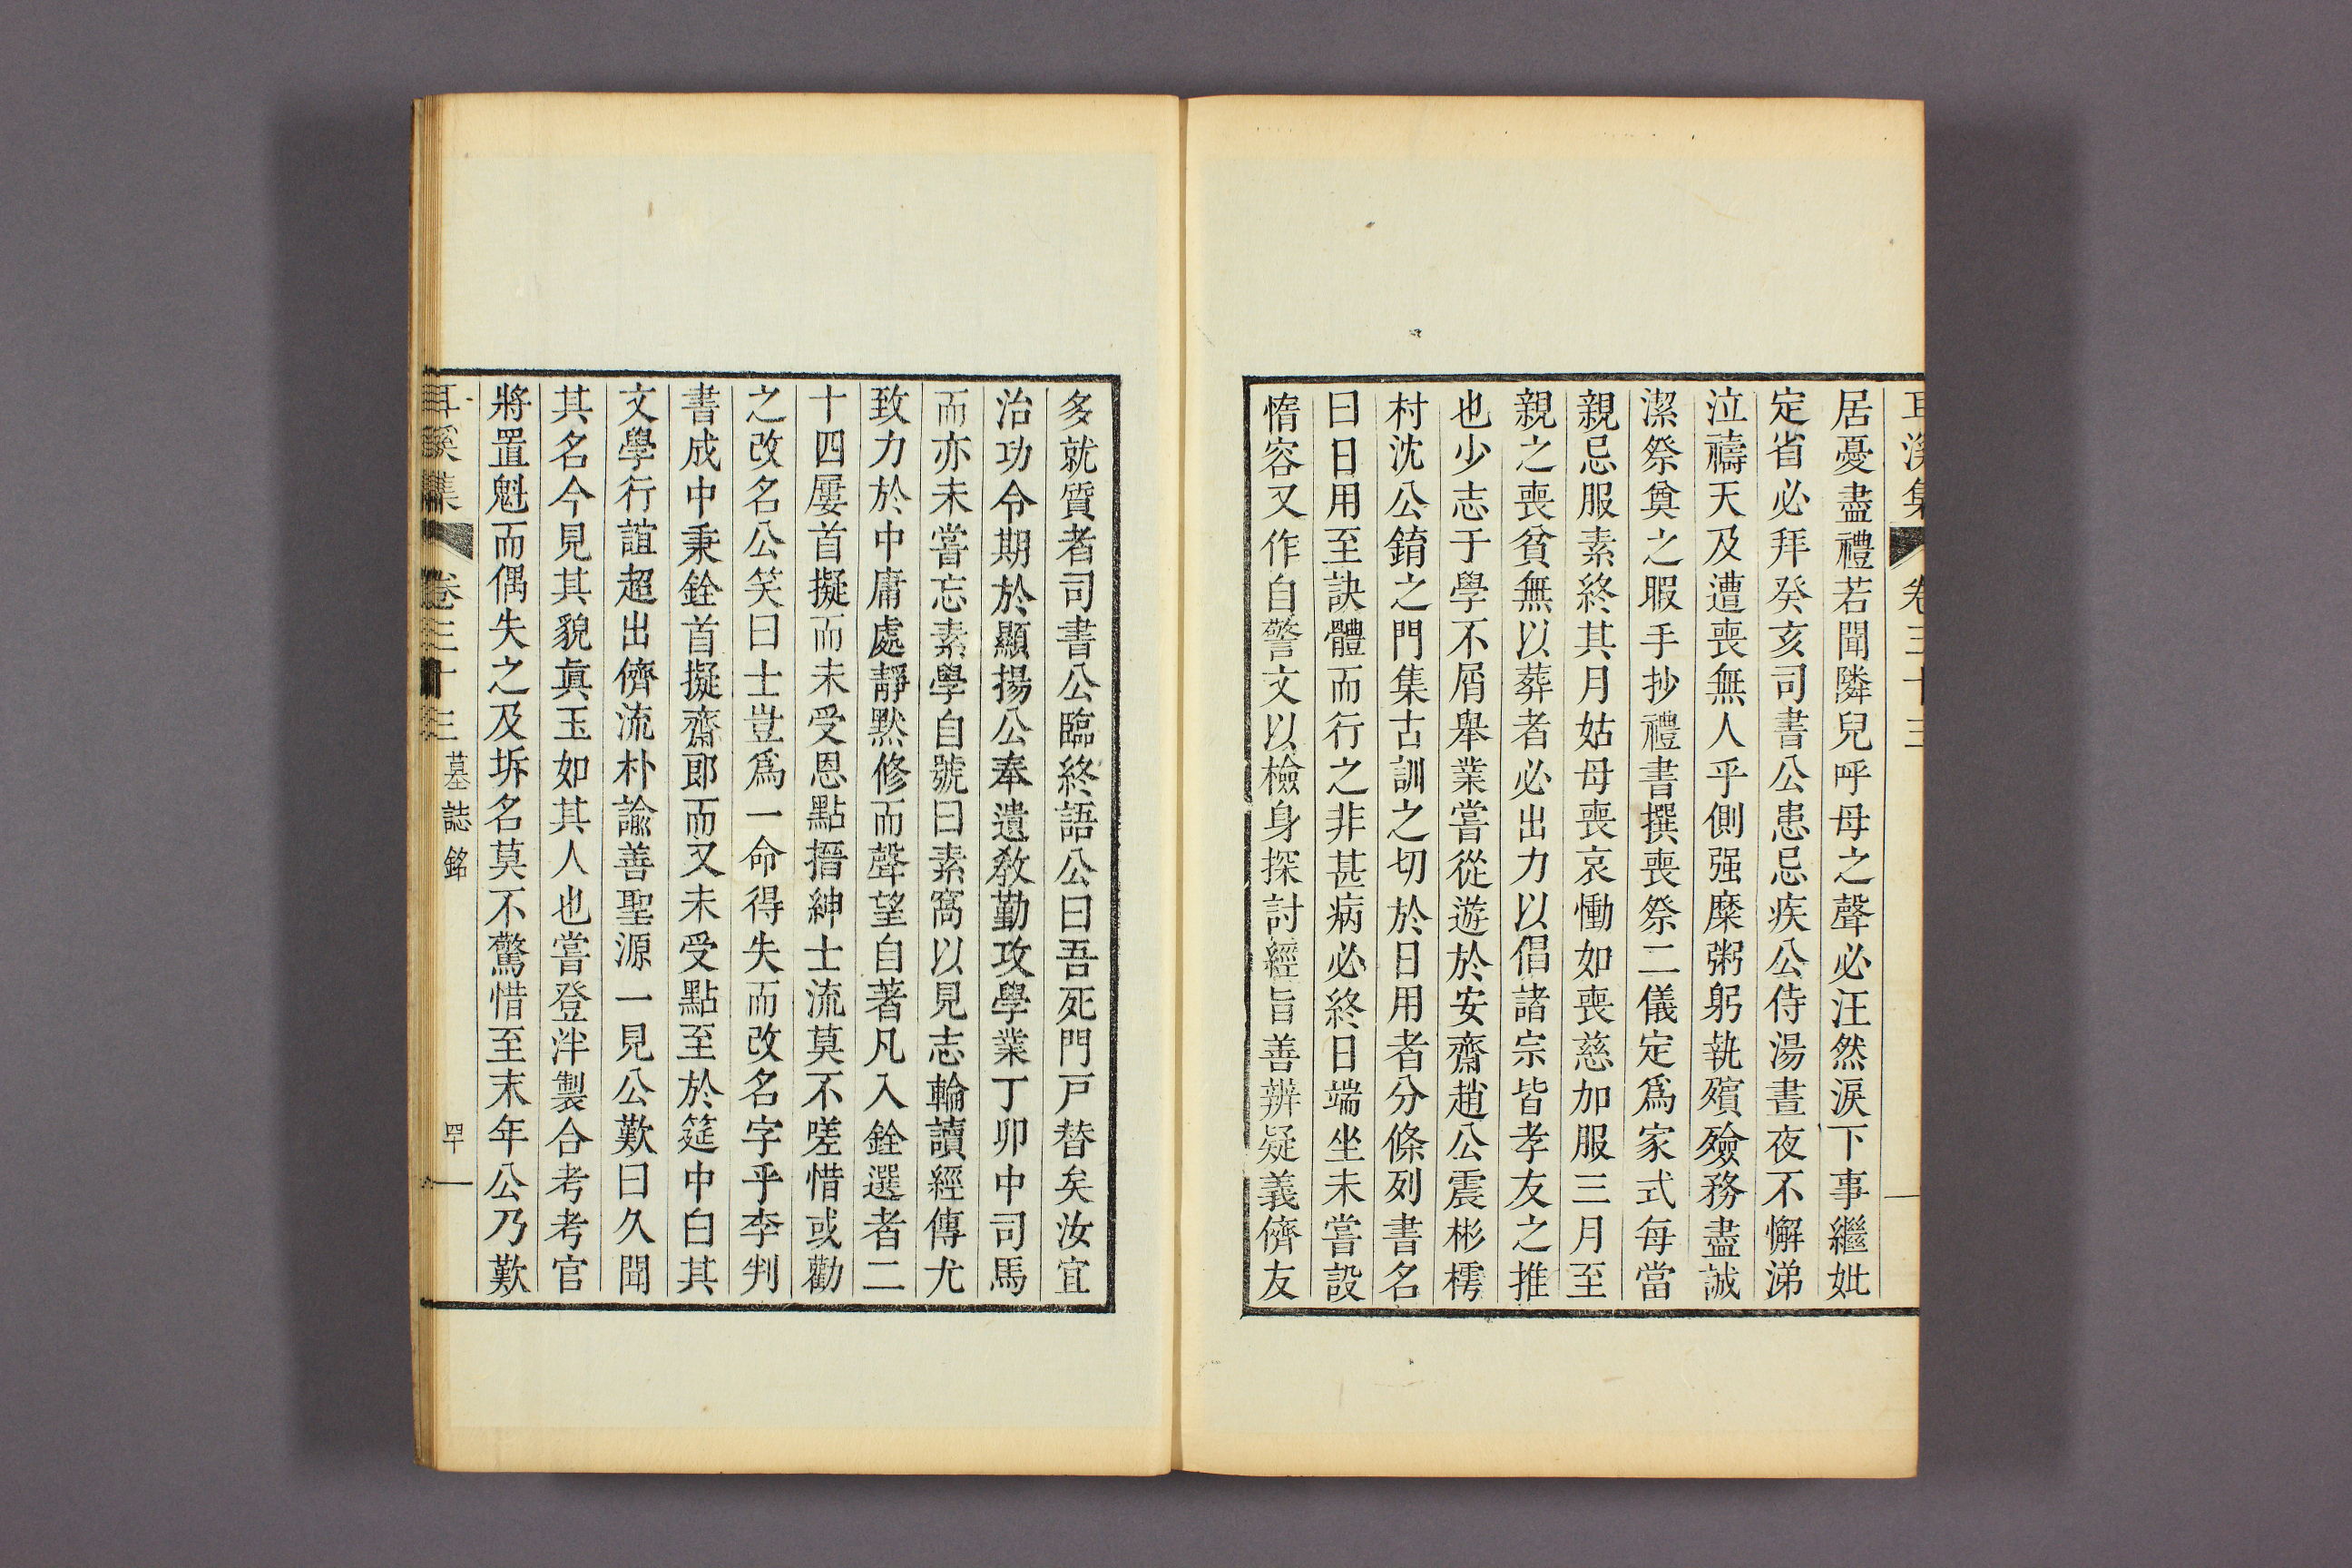 耳溪集 卷三十三
居憂盡禮若聞隣兒呼母之聲必汪然淚下事繼妣
定省必拜癸亥司書公患忌疾公侍湯晝夜不懈涕
泣禱天及遭喪無人乎側强糜粥躬執殯殮務盡誠
潔祭奠之暇手抄禮書撰喪祭二儀定爲家式每當
親忌服素終其月姑母喪哀慟如喪慈加服三月至
親之喪貧無以葬者必出力以倡諸宗皆孝友之推
也少志于學不屑舉業嘗從遊於安齋趙公震彬樗
村沈公錥之門集古訓之切於日用者分條列書名
曰日用至訣體而行之非甚病必終日端坐未嘗設
惰容又作自警文以檢身探討經旨善辨疑義儕友
多就質者司書公臨終語公曰吾死門戸替矣汝宜
治功令期於顯揚公奉遺敎勤攻學業丁卯中司馬
而亦未嘗忘素學自號曰素窩以見志輪讀經傳尤
致力於中庸處靜默修而聲望自著凡入銓選者二
十四屢首擬而未受恩點搢紳士流莫不嗟惜或勸
之改名公笑曰士豈爲一命得失而改名字乎李判
書成中秉銓首擬齋郎而又未受點至於筵中白其
文學行誼超出儕流朴諭善聖源一見公歎曰久聞
其名今見其貌眞玉如其人也嘗登泮製合考考官
將置魁而偶失之及坼名莫不驚惜至末年公乃歎
耳溪集 卷三十三 墓誌銘 四十